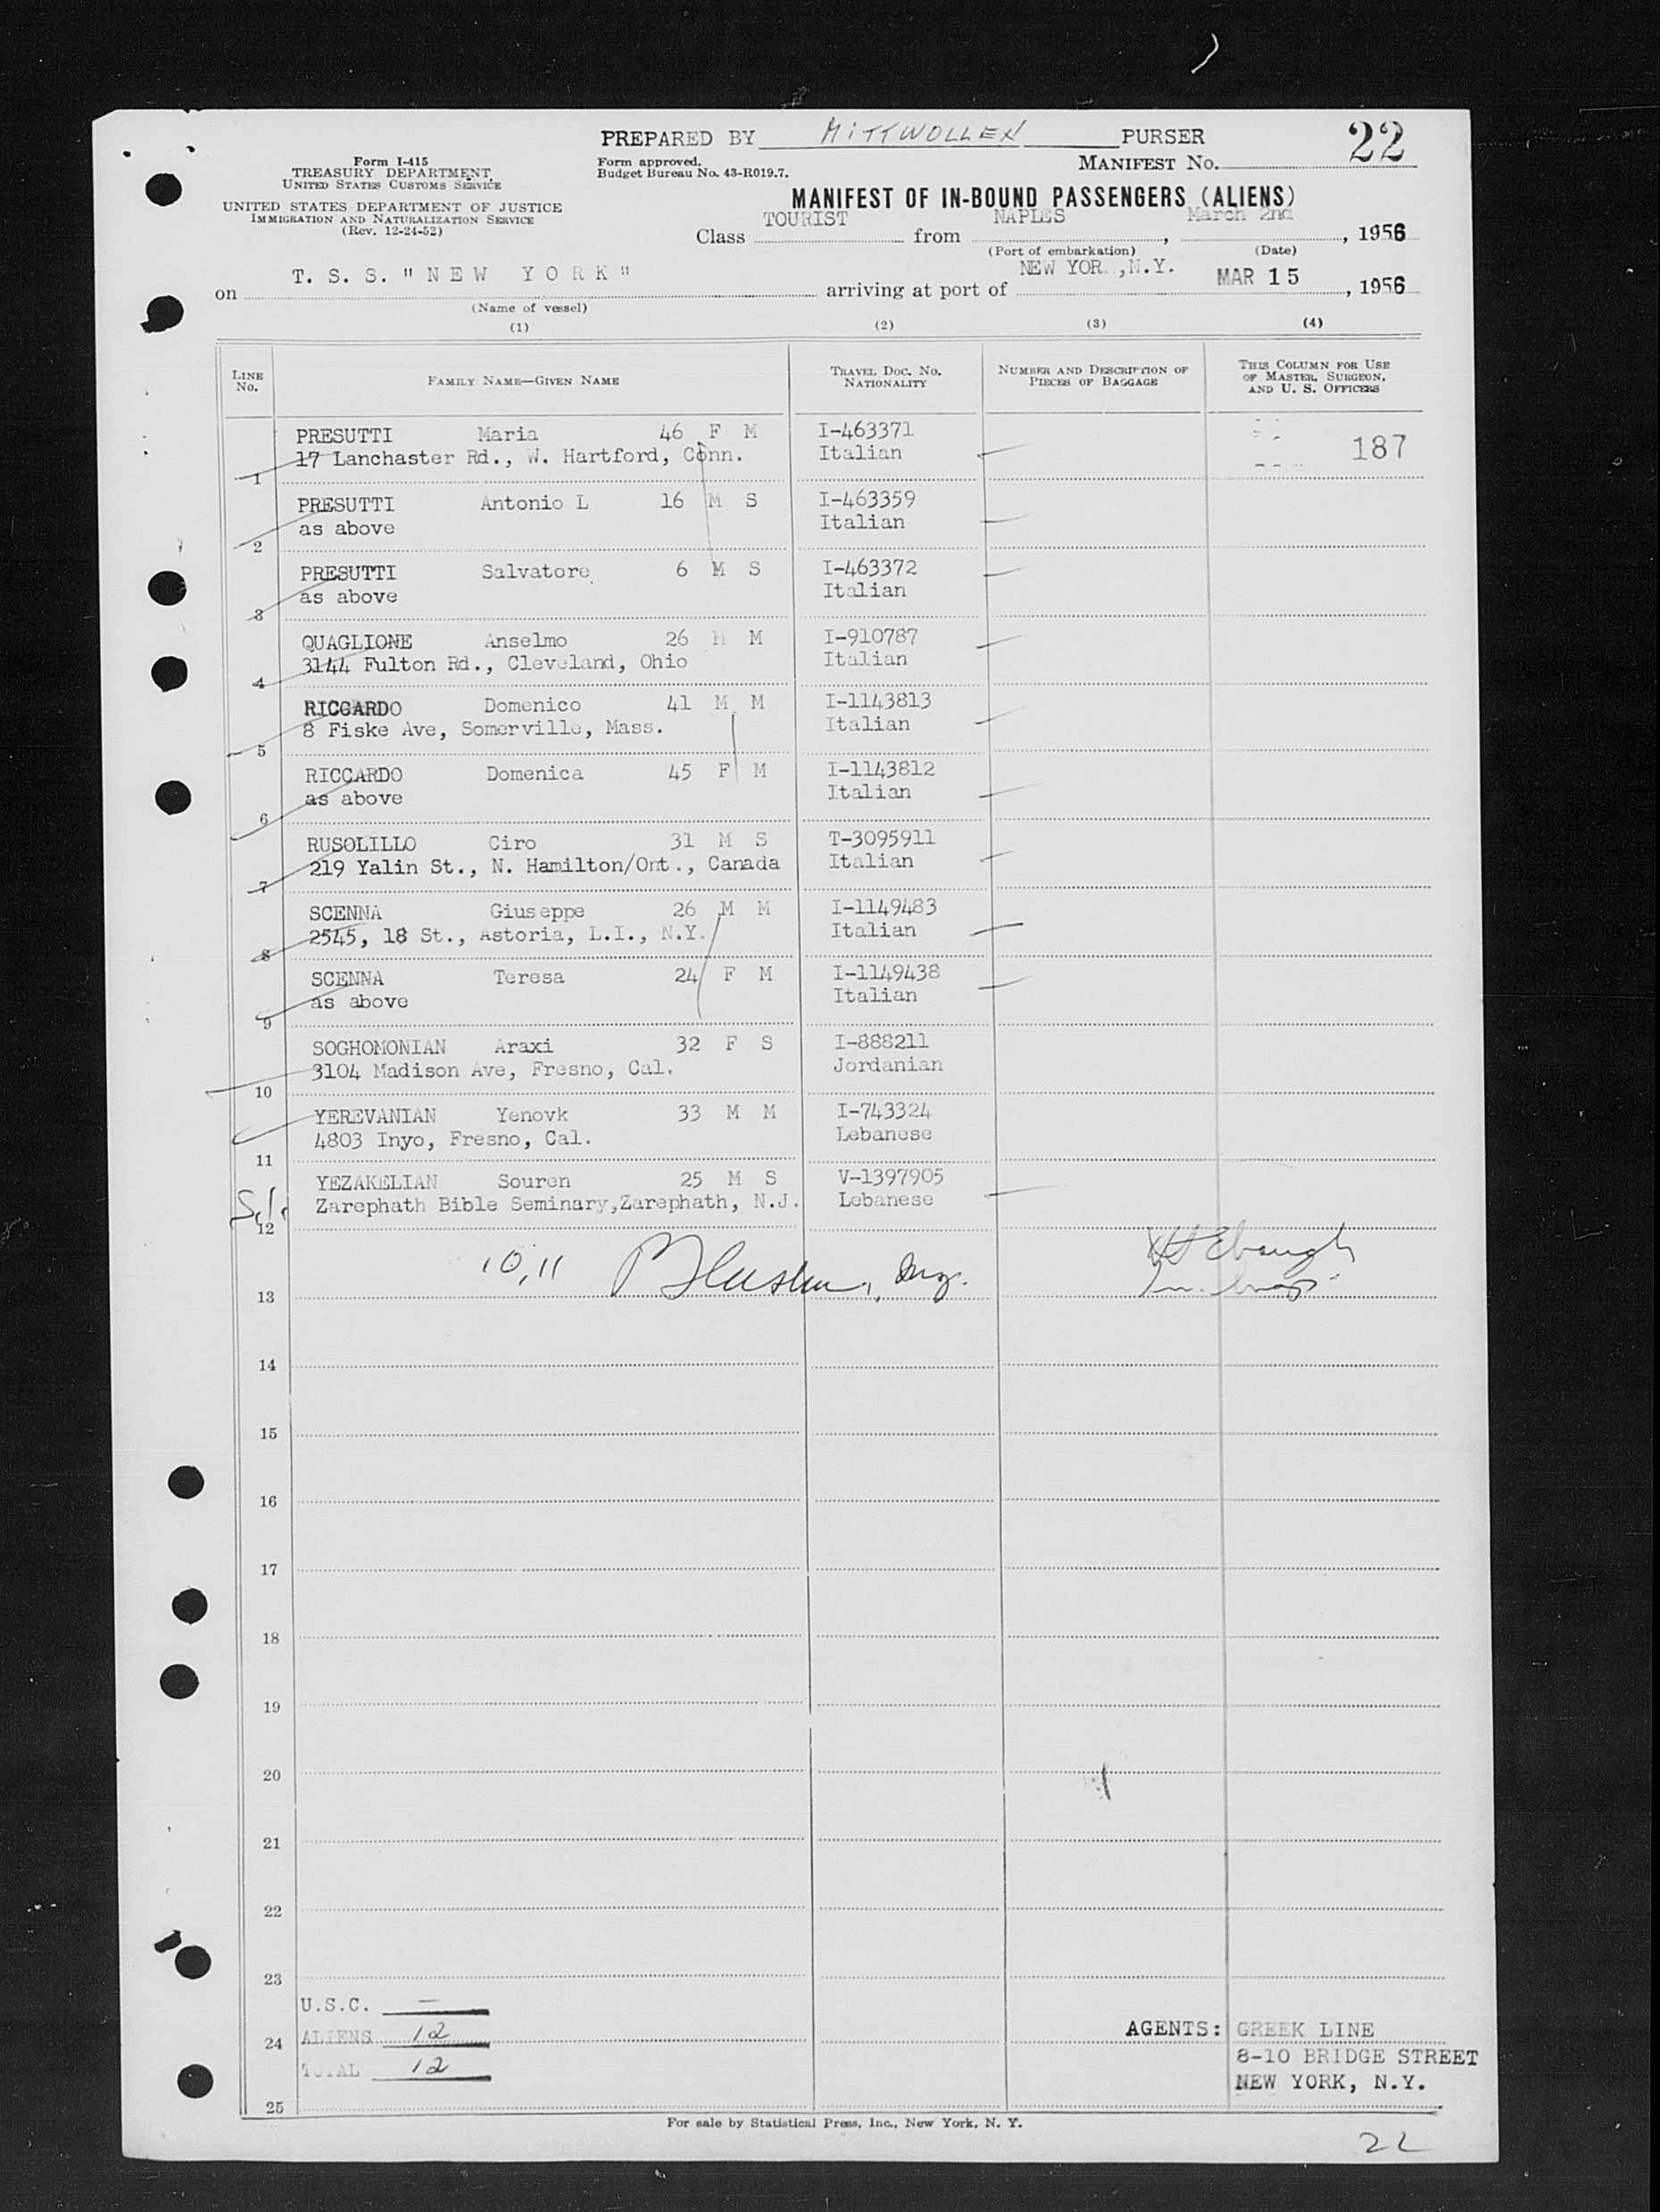 PREPARED BY MITTWOLLEN PURSER 22
Form I-415
TREASURY DEPARTMENT
UNITED STATES CUSTOMS SERVICE
UNITED STATES DEPARTMENT OF JUSTICE
IMMIGRATION AND NATURALIZATION SERVICE
(Rev. 12-24-52)
Form approved.
Budget Bureau No. 43-R019.7.
MANIFEST No.
MANIFEST OF IN-BOUND PASSENGERS (ALIENS)
Class TOURIST from NAPLES, March 2nd, 1956
(Port of embarkation) (Date)
on T. S. S. "NEW YORK" arriving at port of NEW YOR ,N.Y. MAR 15, 1956
(Name of vessel)
(1) (2) (3) (4)
LINE No. FAMILY NAME—GIVEN NAME TRAVEL DOC. No. NATIONALITY NUMBER AND DESCRIPTION OF PIECES OF BAGGAGE THIS COLUMN FOR USE OF MASTER, SURGEON, AND U. S. OFFICERS
PRESUTTI Maria 46 F M I-463371 187
1 17 Lanchaster Rd., W. Hartford, Conn. Italian
PRESUTTI Antonio L 16 M S I-463359
2 as above Italian
PRESUTTI Salvatore 6 M S I-463372
3 as above Italian
QUAGLIONE Anselmo 26 M M I-910787
4 3144 Fulton Rd., Cleveland, Ohio Italian
RICCARDO Domenico 41 M M I-1143813
5 8 Fiske Ave, Somerville, Mass. Italian
RICCARDO Domenica 45 F M I-1143812
6 as above Italian
RUSOLILLO Ciro 31 M S T-3095911
7 219 Yalin St., N. Hamilton/Ont., Canada Italian
SCENNA Giuseppe 26 M M I-1149483
8 2545, 18 St., Astoria, L.I., N.Y. Italian
SCENNA Teresa 24 F M I-1149438
9 as above Italian
SOGHOMONIAN Araxi 32 F S I-888211
10 3104 Madison Ave, Fresno, Cal. Jordanian
YEREVANIAN Yenovk 33 M M I-743324
11 4803 Inyo, Fresno, Cal. Lebanese
YEZAKELIAN Souren 25 M S V-1397905
S.I. 12 Zarephath Bible Seminary,Zarephath, N.J. Lebanese
10,11
13
14
15
16
17
18
19
20
21
22
23
U.S.C. —
24 ALIENS 12 AGENTS: GREEK LINE
8-10 BRIDGE STREET
TOTAL 12 NEW YORK, N.Y.
25
For sale by Statistical Press, Inc., New York, N. Y.
22